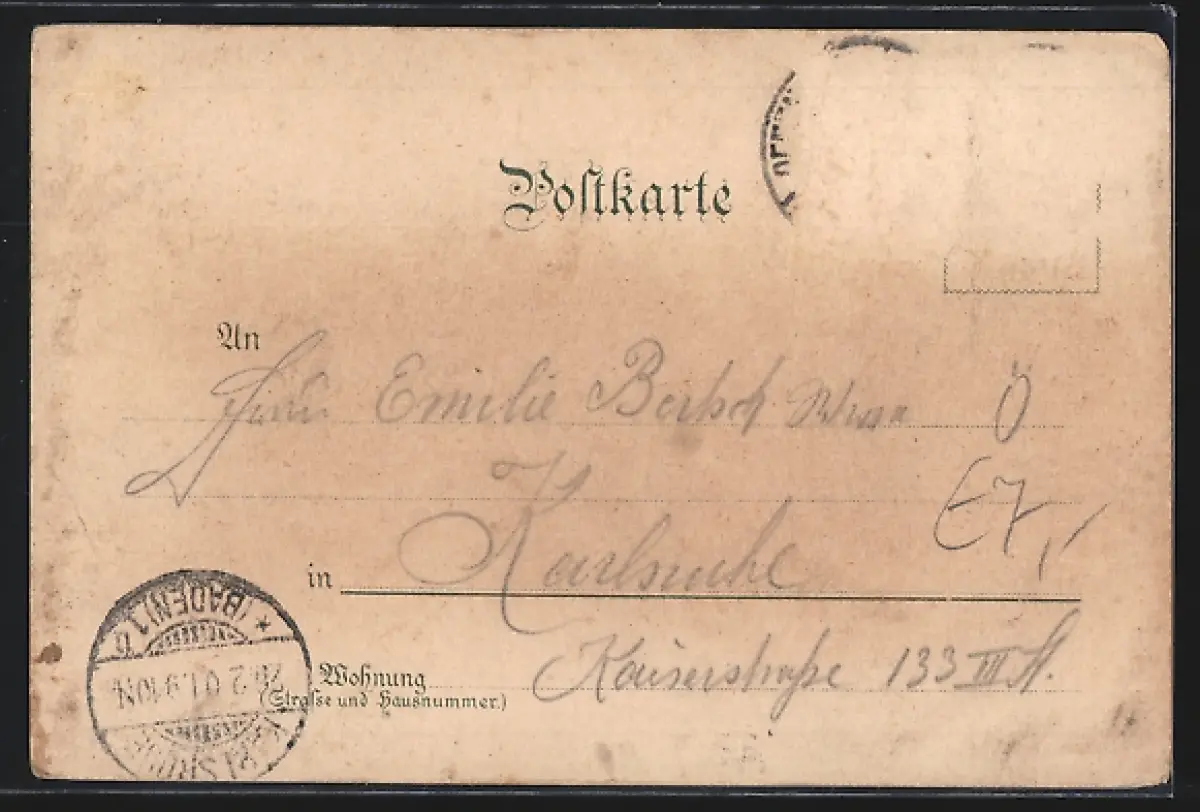 Postkarte
An
Frau Emilie Bertsch
Ö
Karlsruhe
E7,
in
Wohnung
(Strasse und Hausnummer.)
Kaiserstraße 133 III St.
* (BADEN) 1
2.01.9-10N.